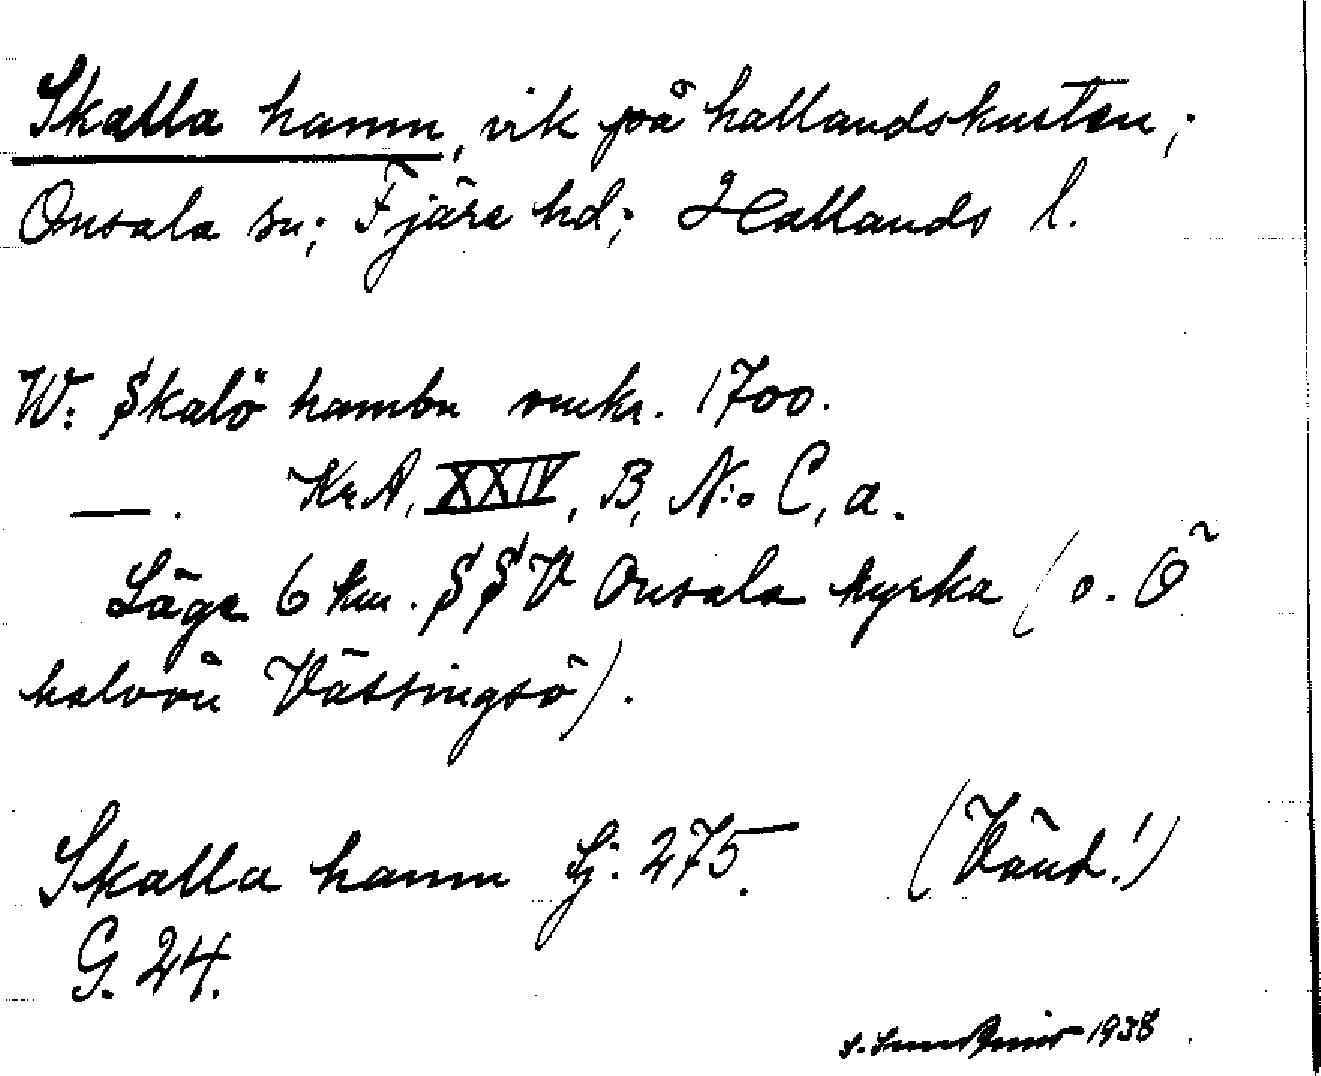 Skalla hamn, vik på hallandskusten;
Onsala sn; Fjäre hd; Hallands l.
W: Skalö hambn omkr. 1700.
—. Kr A, XXIV, B, N:o C, a.
Läge 6 km. SSV Onsala kyrka (o. Ö
halvön Vässingsö).
Skalla hamn Sj: 275. (Vänd!)
G. 24.
1938